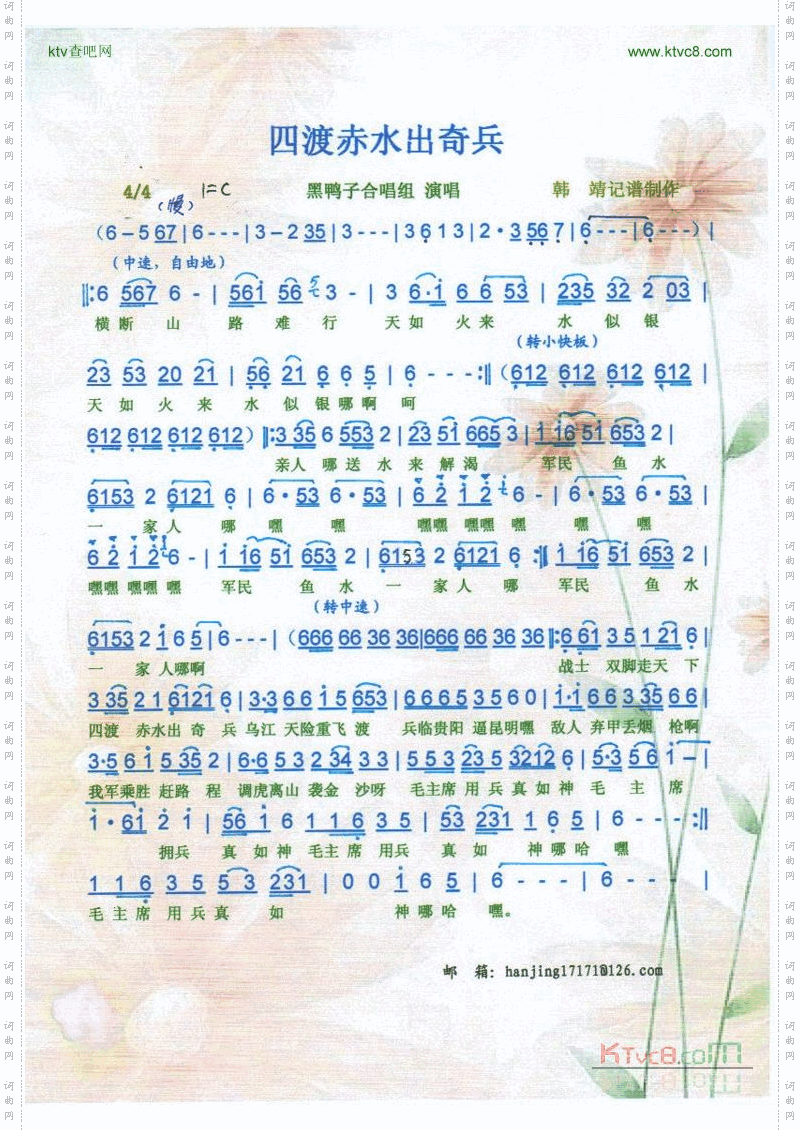 ktv查吧网 www.ktvc8.com
四渡赤水出奇兵
4/4 (慢) 1=C 黑鸭子合唱组 演唱 韩 靖记谱制作
(6-5 67|6---|3-2 35|3---|3 6 1 3|2·3 56 7|6---|6---)|
(中速，自由地)
||:6 567 6-|561 56 3-|3 6·1 66 53|235 32 2 03|
横 断 山 路 难 行 天 如 火 来 水 似 银
(转小快板)
23 53 20 21|56 21 6 6 5|6---:||(612 612 612 612|
天 如 火 来 水 似 银 哪 啊 呵
612 612 612 612)||:3 35 6 553 2|23 51 665 3|1 16 51 653 2|
亲人 哪 送 水 来 解 渴 军民 鱼 水
6153 2 6121 6|6·53 6·53|6 2 1 2 6-|6·53 6·53|
一 家人 哪 嘿 嘿 嘿嘿 嘿嘿 嘿 嘿 嘿
6 2 1 2 6-|1 16 51 653 2|6153 2 6121 6:||1 16 51 653 2|
嘿嘿 嘿嘿 嘿 军民 鱼 水 一 家人 哪 军民 鱼 水
(转中速)
6153 2 1 6 5|6---|(666 66 36 36|666 66 36 36||:6 61 3 5 1 21 6|
一 家 人哪啊 战士 双脚走天 下
3 35 2 1 6121 6|3·3 66 1 5 653|6 6 6 5 3 5 6 0|1·1 6 6 3 35 6 6|
四渡 赤水出 奇 兵 乌江 天险重飞 渡 兵临贵阳 逼昆明嘿 敌人 弃甲丢烟 枪啊
3·5 6 1 5 35 2|6·6 5 3 2 34 3 3|5 5 5 2 23 5 3212 6|5·3 56 1-|
我军乘胜 赶路 程 调虎离山 袭金 沙呀 毛主席 用 兵 真 如 神 毛 主 席
1·61 2 1|56 1 6 1 1 6 3 5|53 231 1 6 5|6--:||
拥兵 真 如神 毛主席 用兵 真 如 神哪哈 嘿
1 1 6 3 5 5 3 231|0 0 1 6 5|6---|6---|
毛 主 席 用 兵 真 如 神 哪 哈 嘿。
邮 箱: hanjing17171@126.com
KTvc8.com